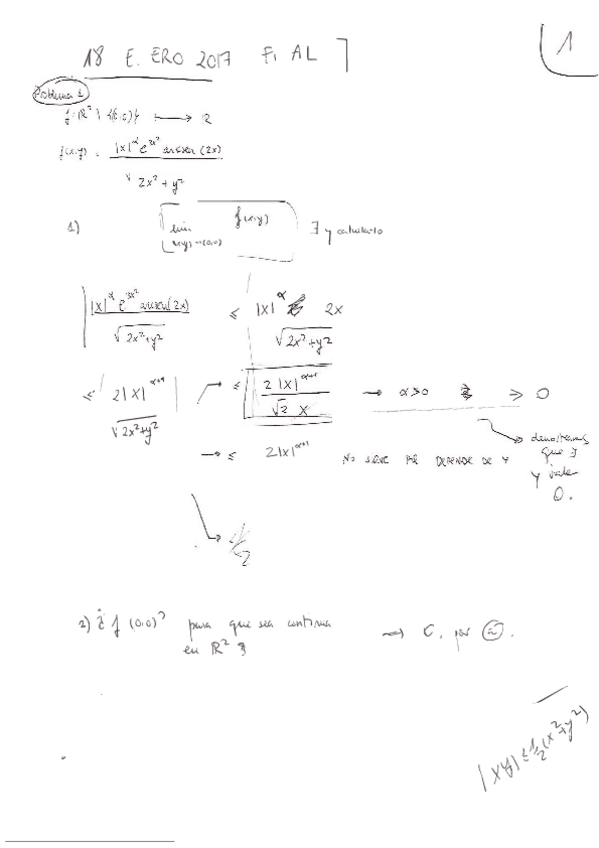 18 E. ERO 2017 FI AL
1
Problema 1
f: R² \ {(0,0)} → R
f(x,y) = |x|^α e^{3x²} arcsen(2x) / √(2x²+y²)
1) lim_{(x,y)→(0,0)} f(x,y) ∃ y calcularlo
| |x|^α e^{3x²} arcsen(2x) / √(2x²+y²) ≤ |x|^α 2x / √(2x²+y²)
≤ | 2|x|^{α+1} / √(2x²+y²) | → ≤ 2|x|^{α+1} / (√2 x) → α>0 ⇒ 0
→ ≤ 2|x|^{α+1} NO SIRVE DEPENDE DE Y
que ∃
y vale
0.
2) ¿ f(0,0)? para que sea continua → 0, por
en R²
|xy| ≤ ½(x²+y²)